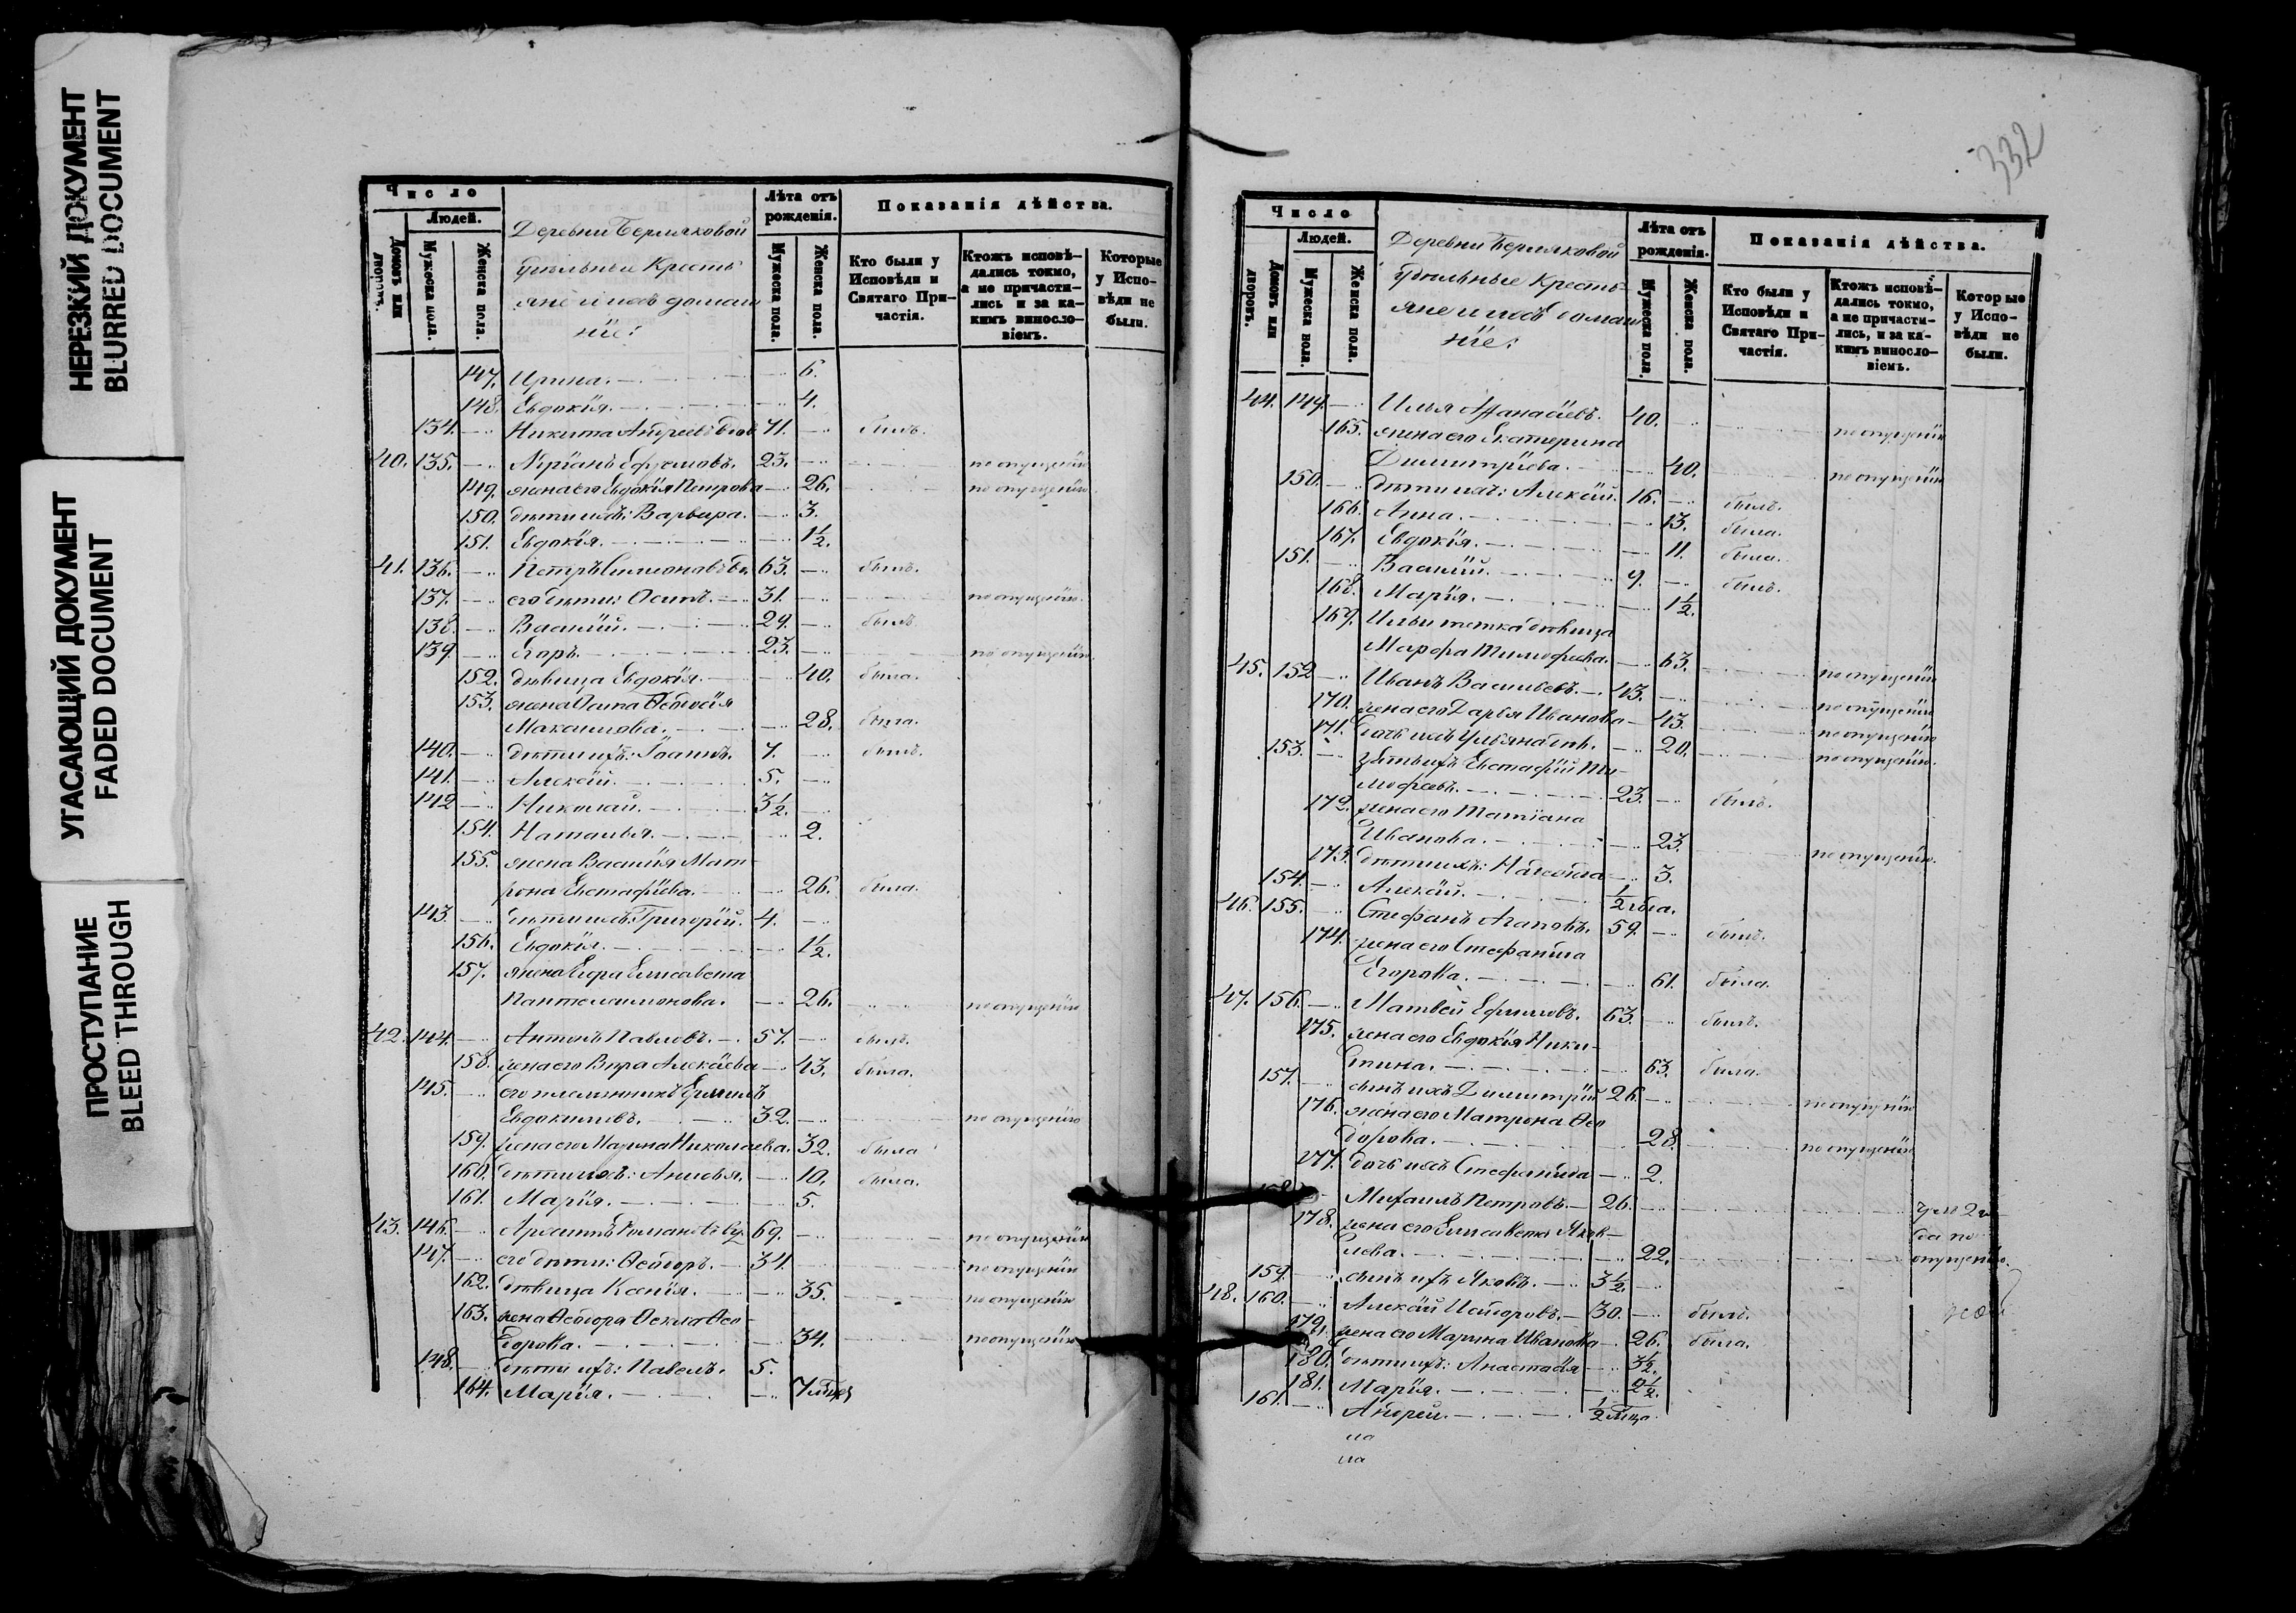 НЕРЕЗКИЙ ДОКУМЕНТ
BLURRED DOCUMENT
УГАСАЮЩИЙ ДОКУМЕНТ
FADED DOCUMENT
ПРОСТУПАНИЕ
BLEED THROUGH
Число
Людей.
Домовъ или дворовъ.
Мужеска пола.
Женска пола.
Деревни Бермяковой
Удѣльные Кресть
яне и ихъ домаш
ніе:
Лѣта отъ рожденія.
Мужеска пола.
Женска пола.
Показанія дѣйства.
Кто были у Исповѣди и Святаго Причастія.
Ктожъ исповѣдались токмо, а не причастились и за какимъ винословіемъ.
Которые у Исповѣди не были.
147. Ирина. 6.
148. Евдокія. 4.
134. Никита Андреевъ вдов. 71. былъ.
40. 135. Ефремовъ. 23. по опущенію
149. жена его Евдокія Петрова 26. по опущенію.
150. дѣти ихъ: Варвара. 3.
151. Евдокія. 1½.
41. 136. Петръ Симеоновъ вд. 63. былъ.
137. его дѣти: Осипъ. 31. по опущенію.
138. Василій. 29. былъ.
139. Егоръ. 23. по опущенію.
152. дѣвица Евдокія. 40. была.
153. жена Осипа Ѳеодосія
Максимова. 28. была.
140. дѣти ихъ: Іоаннъ. 7. былъ.
141. Алексѣй. 5.
142 Николай. 3½.
154. Наталья. 2.
155. жена Василія Мат-
рона Евстафіева. 26. была.
143. дѣти ихъ: Григорій. 4.
156. Евдокія. 1½.
157. жена Егора Елисавета
Пантелеимонова. 26. по опущенію
42. 144. Антонъ Павловъ. 57. былъ.
158. жена его Вѣра Алексѣева 43. была.
145. его племянникъ Ермилъ
Евдокимовъ. 32. по опущенію
159. жена его Марина Николаева. 32. была
160. дѣти ихъ: Анисья. 10. была.
161. Марія. 5.
43. 146. Романовъ вд. 69. по опущенію
147. его дѣти: Ѳеодоръ. 34. по опущенію
162. дѣвица Ксенія. 35. по опущенію
163. жена Ѳеодора Ѳекла Ѳео-
дорова. 34. по опущенію
148. дѣти ихъ: Павелъ. 5.
164. Марія. 7 мѣсяц
332
Число
Людей.
Домовъ или дворовъ.
Мужеска пола.
Женска пола.
Деревни Бермяковой
Удѣльные Кресть-
яне и ихъ домаш
ніе:
Лѣта отъ рожденія.
Мужеска пола.
Женска пола.
Показанія дѣйства.
Кто были у Исповѣди и Святаго Причастія.
Ктожъ исповѣдались токмо, а не причастились, и за какимъ винословіемъ.
Которые у Исповѣди не были.
44. 149. Илья Афанасіевъ. 40. по опущенію
165. жена его Екатерина
Димитріева. 40. по опущенію
150. дѣти ихъ: Алексѣй. 16. былъ.
166. Анна. 13. была.
167. Евдокія. 11. была.
151. Василій. 9. былъ.
168. Марія. 1½.
169. Ильи тетка дѣвица
Марфа Тимофеева. 63. по опущенію
45. 152 Иванъ Васильевъ. 43. по опущенію
170. жена его Дарья Иванова 43. по опущенію
171. дочь ихъ Ульяна дѣв. 20. по опущенію.
153. зять ихъ Евстафій Ти-
мофѣевъ. 23. былъ.
172. жена его Татіана
Иванова. 23. по опущенію.
173. дѣти ихъ: 3.
154. Алексѣй. ½ года.
46. 155. Стефанъ Агаповъ. 59. былъ.
174. жена его Стефанида
Егорова. 61. была.
47. 156. Матвей Ефимовъ. 63. былъ.
175. жена его Евдокія Ники-
тина. 63. была.
157. сынъ ихъ Димитрій 26. по опущенію
176. жена его Матрона Ѳео
дорова. 28. по опущенію
177. дочь ихъ Стефанида 2.
158. Михаилъ Петровъ. 26.
178. жена его Елисавета Яков-
лева. 22. опущенію.
159. сынъ ихъ Яковъ. 3½.
48. 160. Алексѣй Исидоровъ. 30. былъ.
179. жена его Марина Иванова 26. была.
180. дѣти ихъ: Анастасія 3½.
181. Марія. 2½.
161. Андрей. ½ мѣсц.